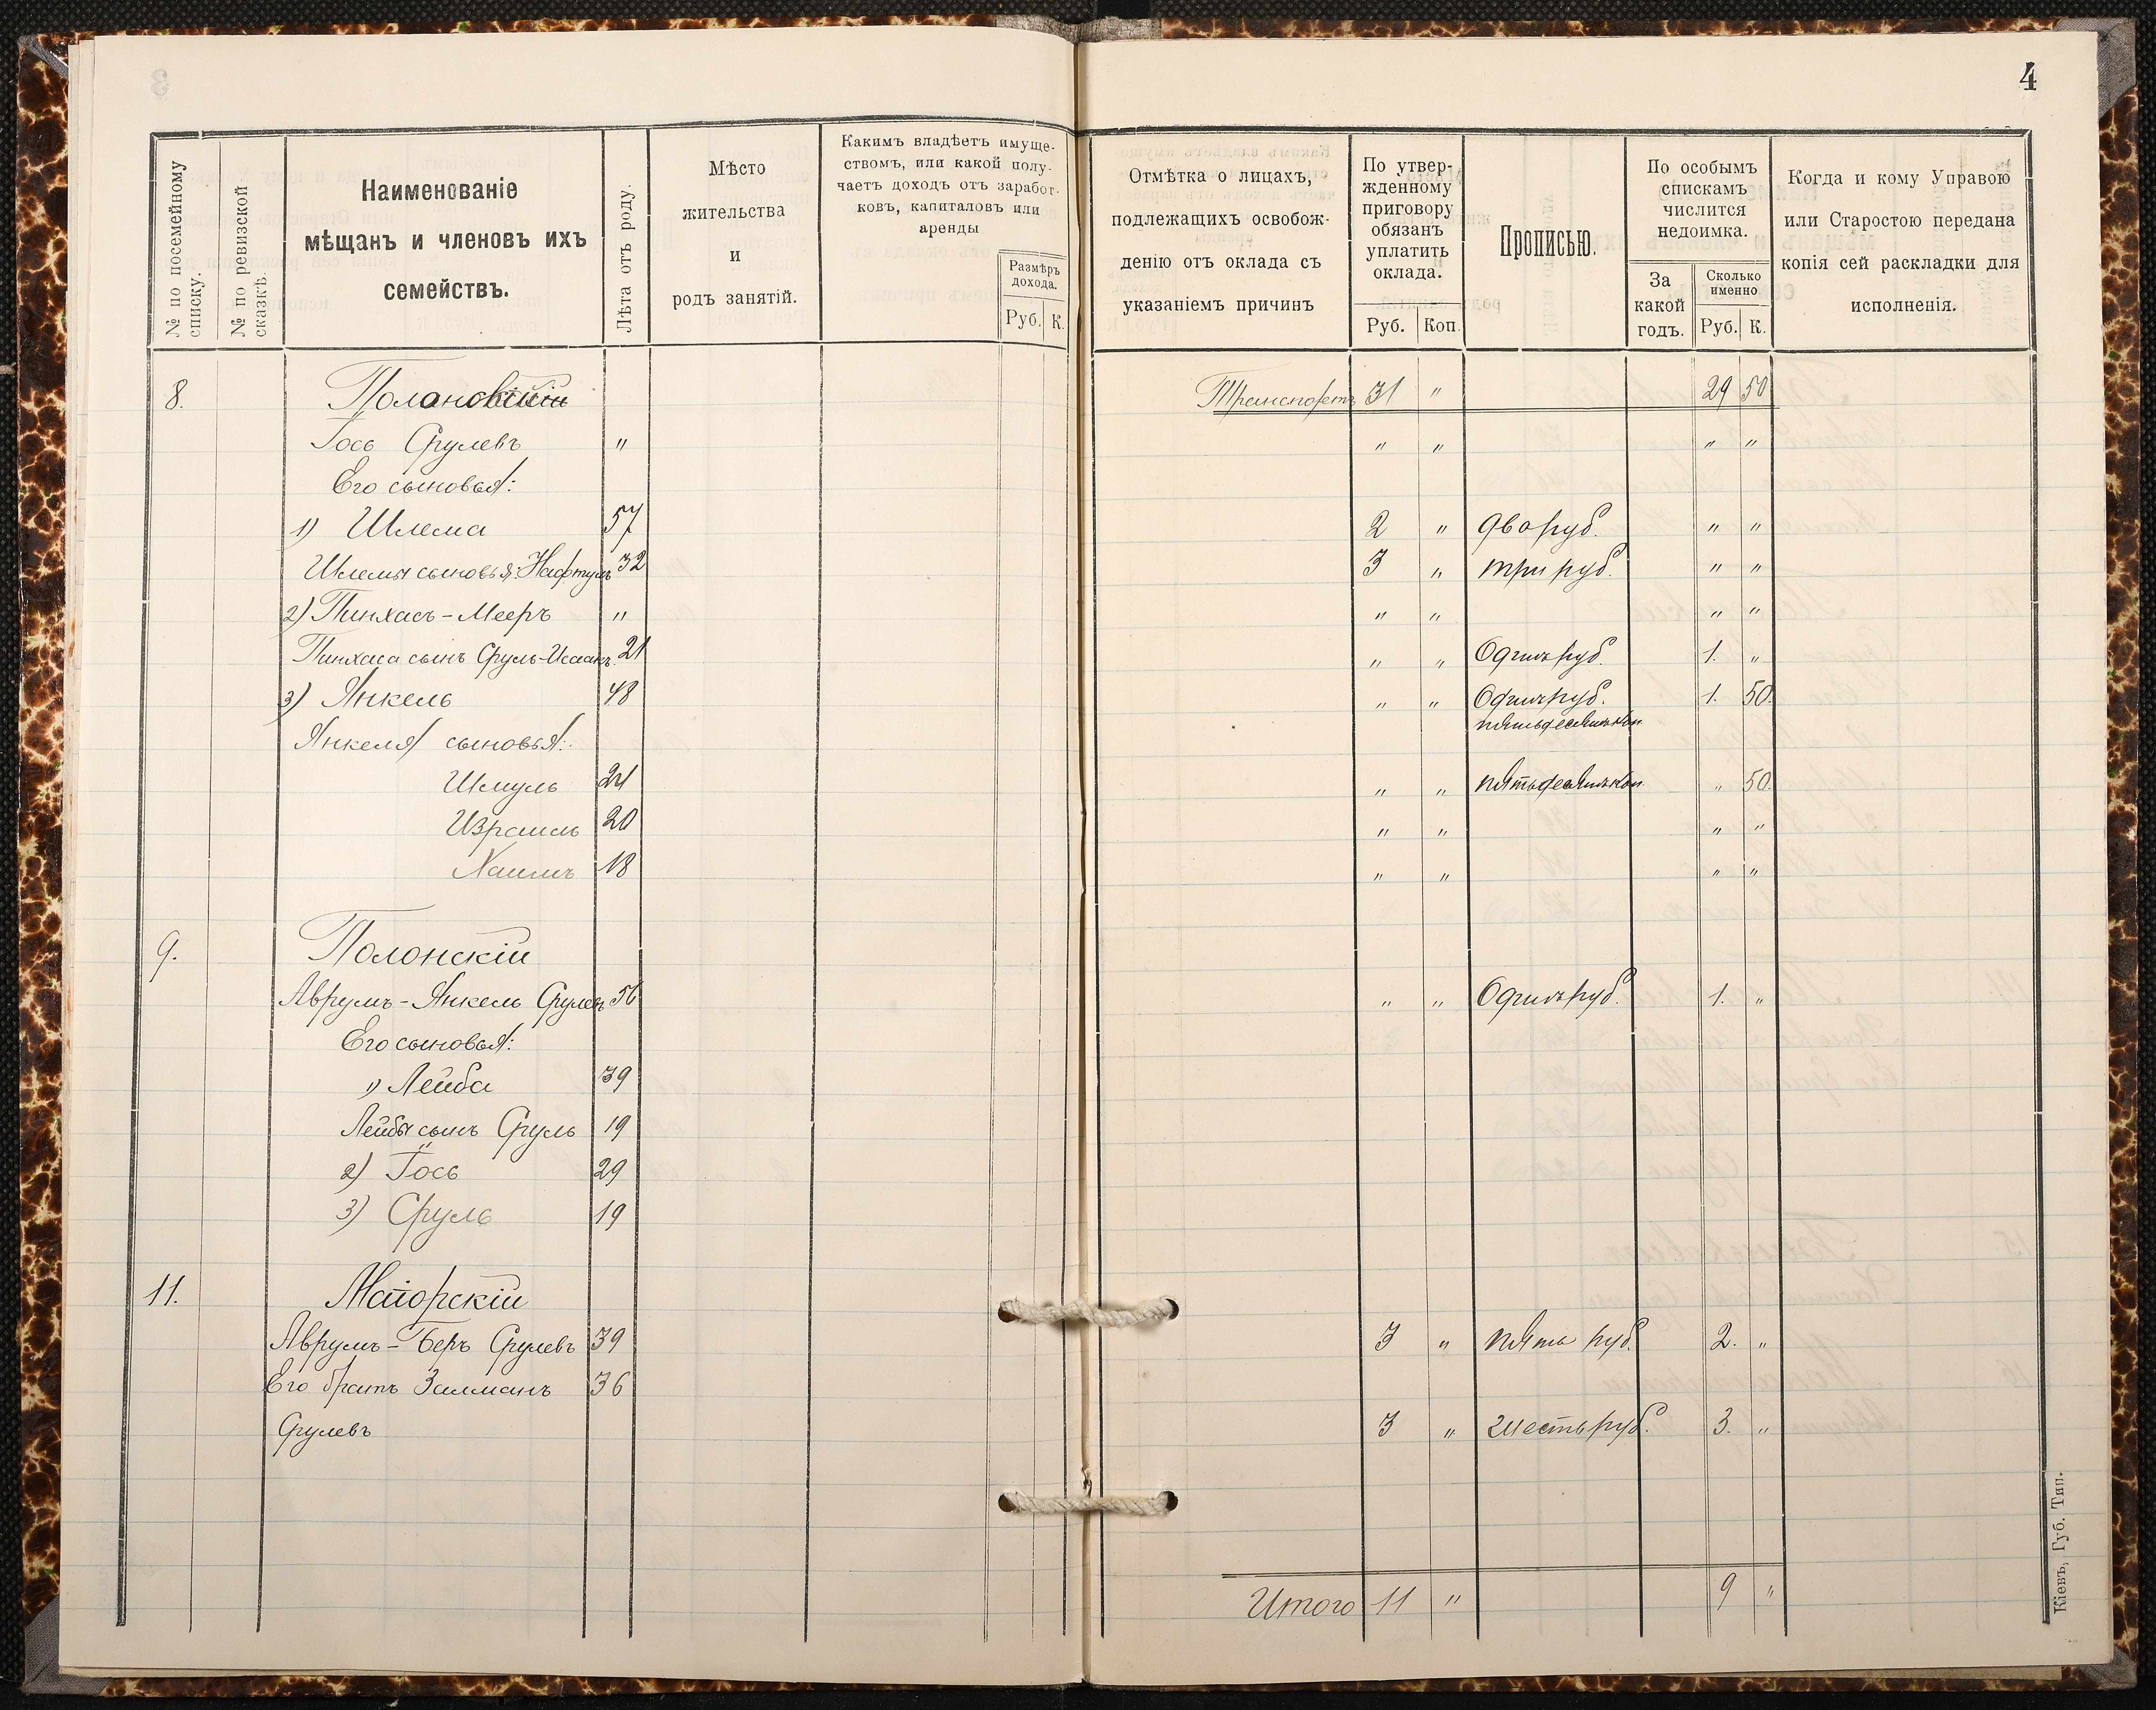 4
№ по посемейному списку.
№ по ревизской сказкѣ.
Наименованіе
мѣщанъ и членовъ ихъ
семействъ.
Лѣта отъ роду.
Мѣсто
жительства
и
родъ занятій.
Какимъ владѣетъ имуще-
ствомъ, или какой полу-
чаетъ доходъ отъ заработ-
ковъ, капиталовъ или
аренды
Размѣръ
дохода.
Руб. К.
Отмѣтка о лицахъ,
подлежащихъ освобож-
денію отъ оклада съ
указаніемъ причинъ
По утвер-
жденному
приговору
обязанъ
уплатить
оклада.
Руб. Коп.
Прописью.
По особымъ
спискамъ
числится
недоимка.
За
какой
годъ.
Сколько
именно
Руб. К.
Когда и кому Управою
или Старостою передана
копія сей раскладки для
исполненія.
8. Транспортъ 31 " 29 50
Іось Срулевъ " " " " "
Его сыновья:
1) Шлема 57 2 " два руб. " "
Шлемы сыновья: Нафтулъ 32 3 " три руб. " "
2) Пинхасъ-Мееръ " " " " "
Пинхаса сынъ Сруль-Исаакъ. 21 " " Одинъ руб. 1. "
3) Янкель 48 " " Одинъ руб. 1. 50.
пятьдесятъ коп.
Янкеля сыновья:
Шмуль 24 " " пятьдесятъ коп. " 50.
Израиль 20 " " " "
Хаимъ 18 " " " "
9. Полонскій
Аврумъ-Янкель Срулевъ 56 " " Одинъ руб. 1. "
Его сыновья:
1) Лейба 39
Лейбы сынъ Сруль 19
2) Іось 29
3) Сруль 19
11. Маіорскій
Аврумъ-Беръ Срулевъ 39 3 " пять руб. 2. "
Его братъ Залманъ 36
Срулевъ 3 " шесть руб. 3. "
Итого 11 " 9 "
Кіевъ, Губ. Тип.